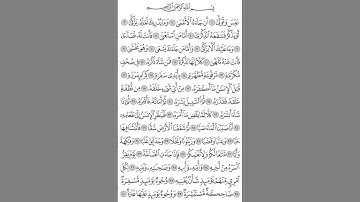 بِسْمِ ٱللَّهِ ٱلرَّحْمَٰنِ ٱلرَّحِيمِ
عَبَسَ وَتَوَلَّىٰٓ ۝ أَن جَآءَهُ ٱلْأَعْمَىٰ ۝ وَمَا يُدْرِيكَ لَعَلَّهُۥ يَزَّكَّىٰٓ ۝
أَوْ يَذَّكَّرُ فَتَنفَعَهُ ٱلذِّكْرَىٰٓ ۝ أَمَّا مَنِ ٱسْتَغْنَىٰ ۝ فَأَنتَ لَهُۥ تَصَدَّىٰ ۝
وَمَا عَلَيْكَ أَلَّا يَزَّكَّىٰ ۝ وَأَمَّا مَن جَآءَكَ يَسْعَىٰ ۝ وَهُوَ يَخْشَىٰ ۝
فَأَنتَ عَنْهُ تَلَهَّىٰ ۝ كَلَّآ إِنَّهَا تَذْكِرَةٌ ۝ فَمَن شَآءَ ذَكَرَهُۥ ۝ فِى صُحُفٍ
مُّكَرَّمَةٍ ۝ مَّرْفُوعَةٍ مُّطَهَّرَةٍۭ ۝ بِأَيْدِى سَفَرَةٍ ۝ كِرَامٍۭ بَرَرَةٍ ۝
قُتِلَ ٱلْإِنسَٰنُ مَآ أَكْفَرَهُۥ ۝ مِنْ أَىِّ شَىْءٍ خَلَقَهُۥ ۝ مِن نُّطْفَةٍ
خَلَقَهُۥ فَقَدَّرَهُۥ ۝ ثُمَّ ٱلسَّبِيلَ يَسَّرَهُۥ ۝ ثُمَّ أَمَاتَهُۥ فَأَقْبَرَهُۥ ۝ ثُمَّ إِذَا
شَآءَ أَنشَرَهُۥ ۝ كَلَّا لَمَّا يَقْضِ مَآ أَمَرَهُۥ ۝ فَلْيَنظُرِ ٱلْإِنسَٰنُ إِلَىٰ طَعَامِهِۦٓ ۝
أَنَّا صَبَبْنَا ٱلْمَآءَ صَبًّا ۝ ثُمَّ شَقَقْنَا ٱلْأَرْضَ شَقًّا ۝ فَأَنۢبَتْنَا فِيهَا
حَبًّا ۝ وَعِنَبًا وَقَضْبًا ۝ وَزَيْتُونًا وَنَخْلًا ۝ وَحَدَآئِقَ غُلْبًا ۝ وَفَٰكِهَةً
وَأَبًّا ۝ مَّتَٰعًا لَّكُمْ وَلِأَنْعَٰمِكُمْ ۝ فَإِذَا جَآءَتِ ٱلصَّآخَّةُ ۝ يَوْمَ يَفِرُّ
ٱلْمَرْءُ مِنْ أَخِيهِ ۝ وَأُمِّهِۦ وَأَبِيهِ ۝ وَصَٰحِبَتِهِۦ وَبَنِيهِ ۝ لِكُلِّ
ٱمْرِئٍ مِّنْهُمْ يَوْمَئِذٍ شَأْنٌ يُغْنِيهِ ۝ وُجُوهٌ يَوْمَئِذٍ مُّسْفِرَةٌ ۝
ضَاحِكَةٌ مُّسْتَبْشِرَةٌ ۝ وَوُجُوهٌ يَوْمَئِذٍ عَلَيْهَا غَبَرَةٌ ۝